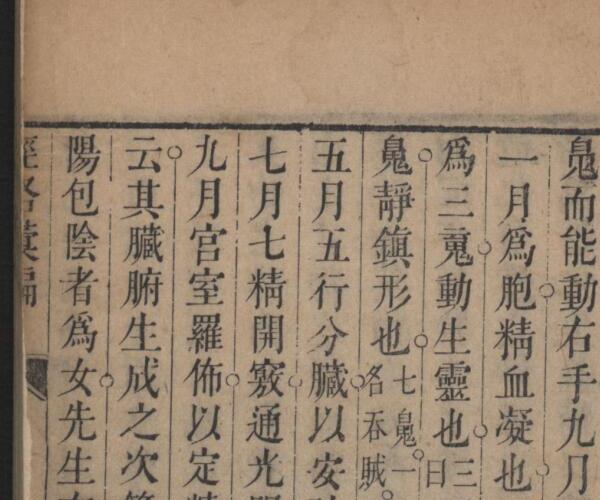 鳬而能動右手九月
一月為胞精血凝也
為三䰟動生靈也三
曰
鬼靜鎮形也七鬼一
名吞賊
五月五行分臟以安
七月七精開竅通光
九月宮室羅佈以定
云其臟腑生成之次
陽包陰者為女先生
經絡彙編